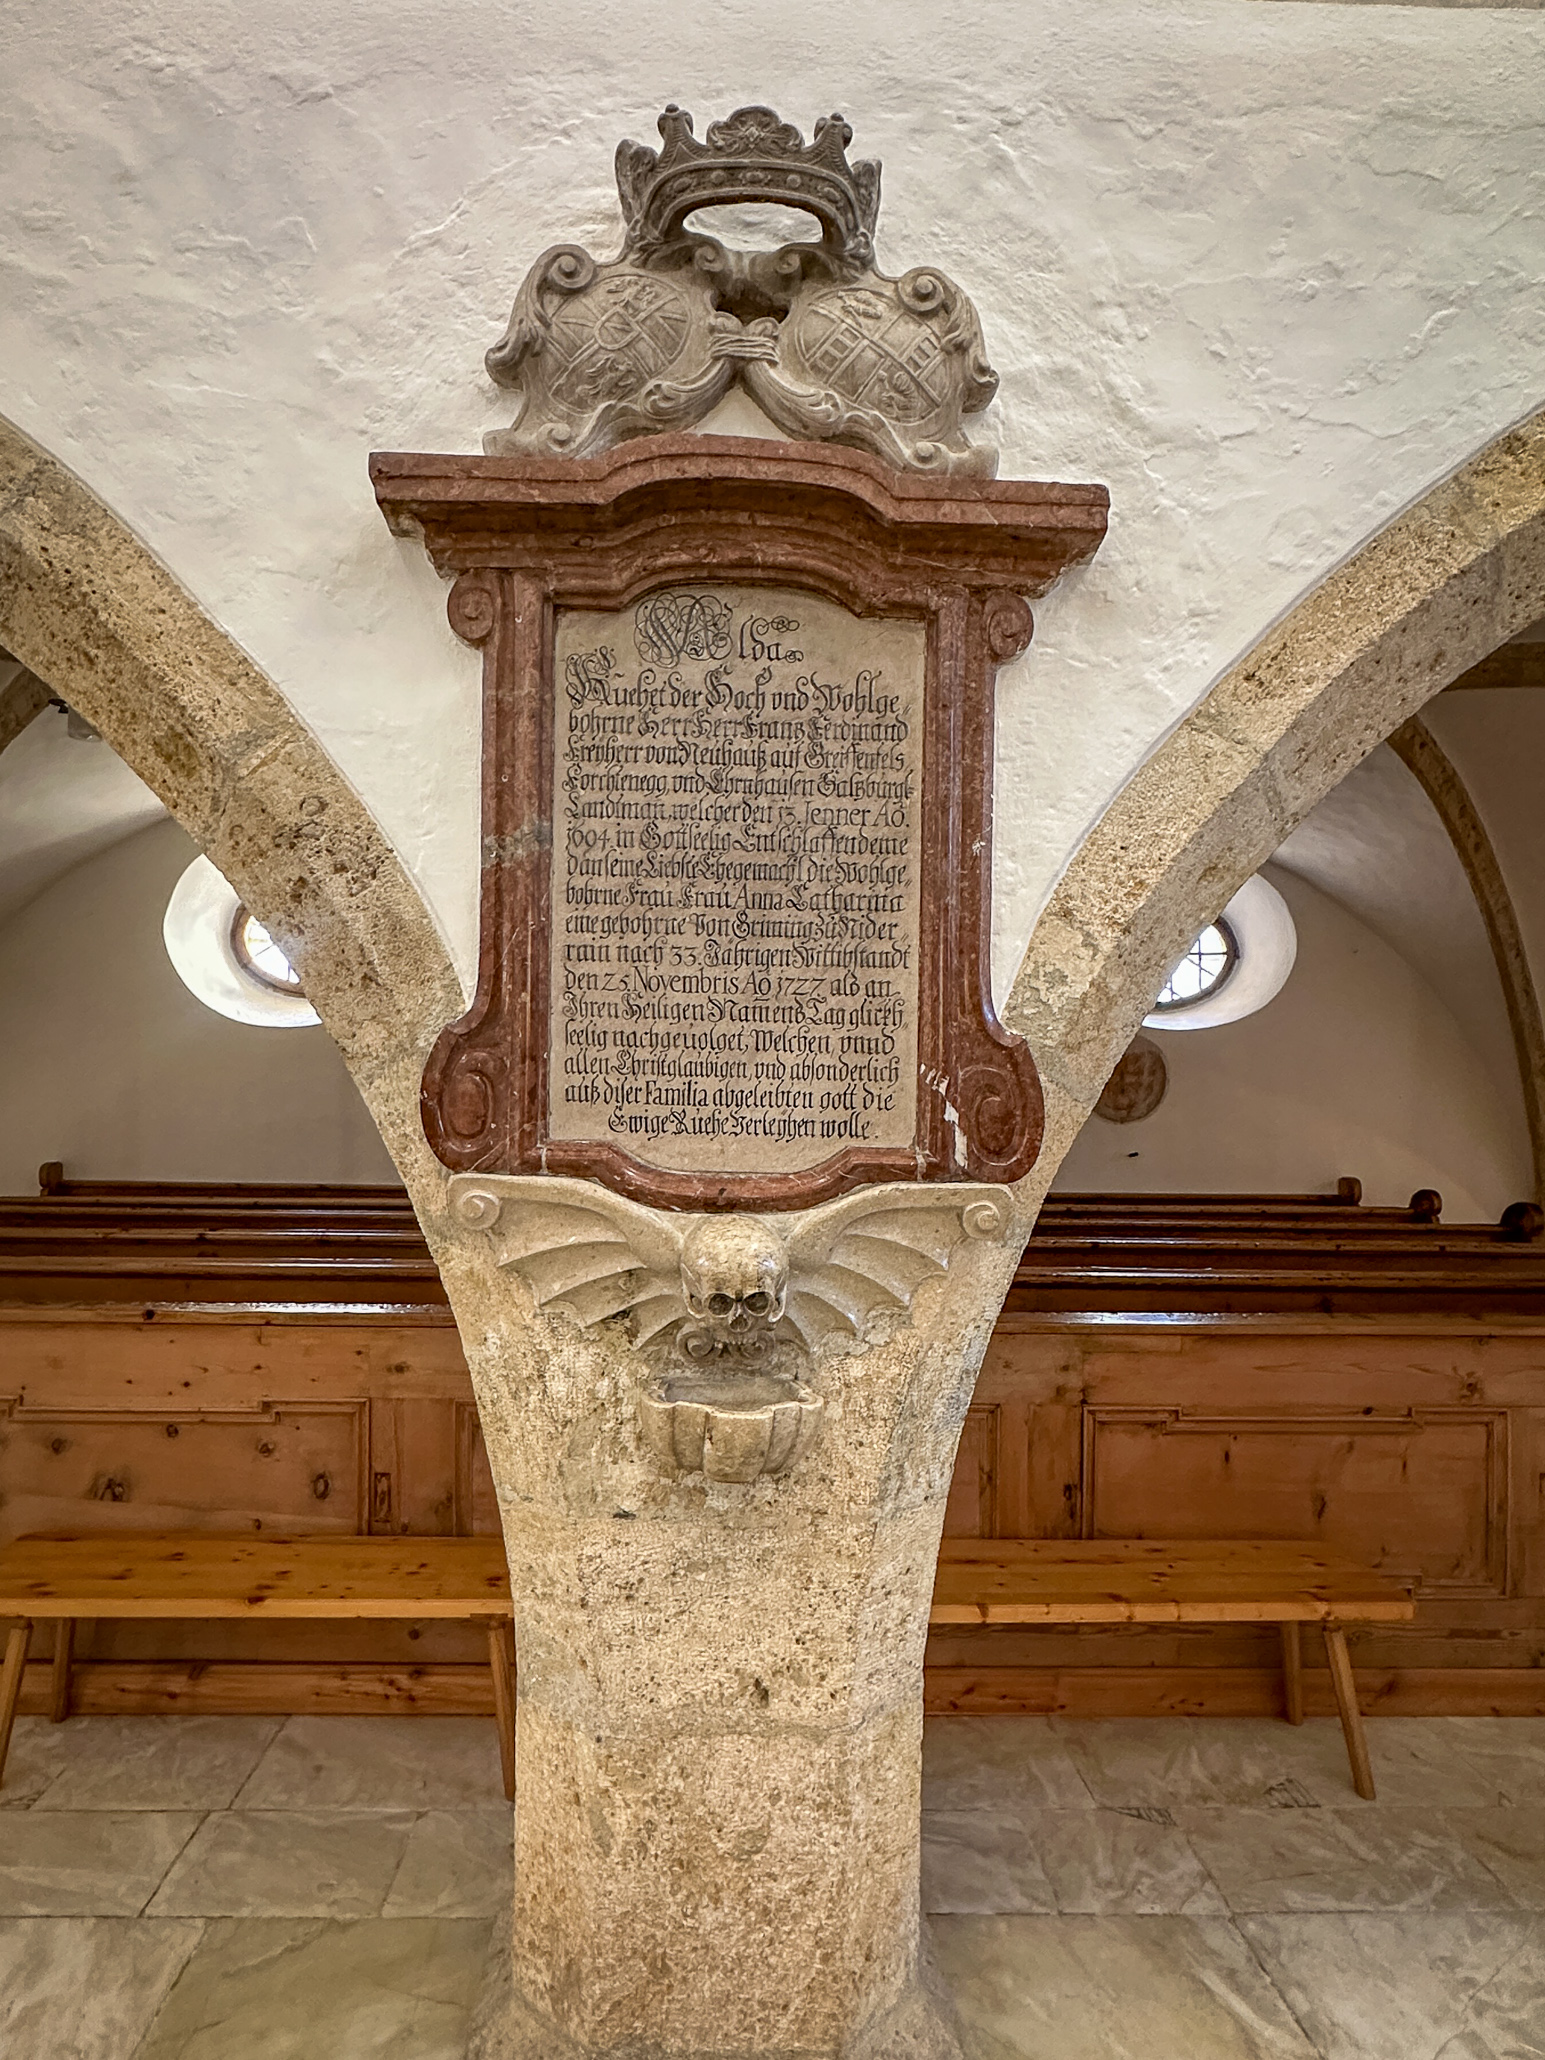 Alda
Ruehet der Hoch vnd Wohlge„
bohrne Herr Herr Frantz Ferdinand
Freyherr von Neuhauß auf Greiffenfels
Forchtenegg, vnd Ehrnhausen Saltzburg:
Landtman, welcher den 13. Jenner Ao.
1694. in Gottseelig Entschlaffen deme
dan seine Liebste Ehegemachl die Wohlge„
bohrne Frau Frau Anna Catharina
eine gebohrne Von Griming zu Nider„
rain nach 33. Jährigen Wittibstandt
den 25. Novembris Ao 1727 als an
Ihren Heiligen Namens Tag glickh„
seelig nachgeuolget, Welchen, vnnd
allen Christglaubigen, vnd absonderlich
auß diser Familia abgeleibten gott die
Ewige Ruehe Verleyhen wolle.